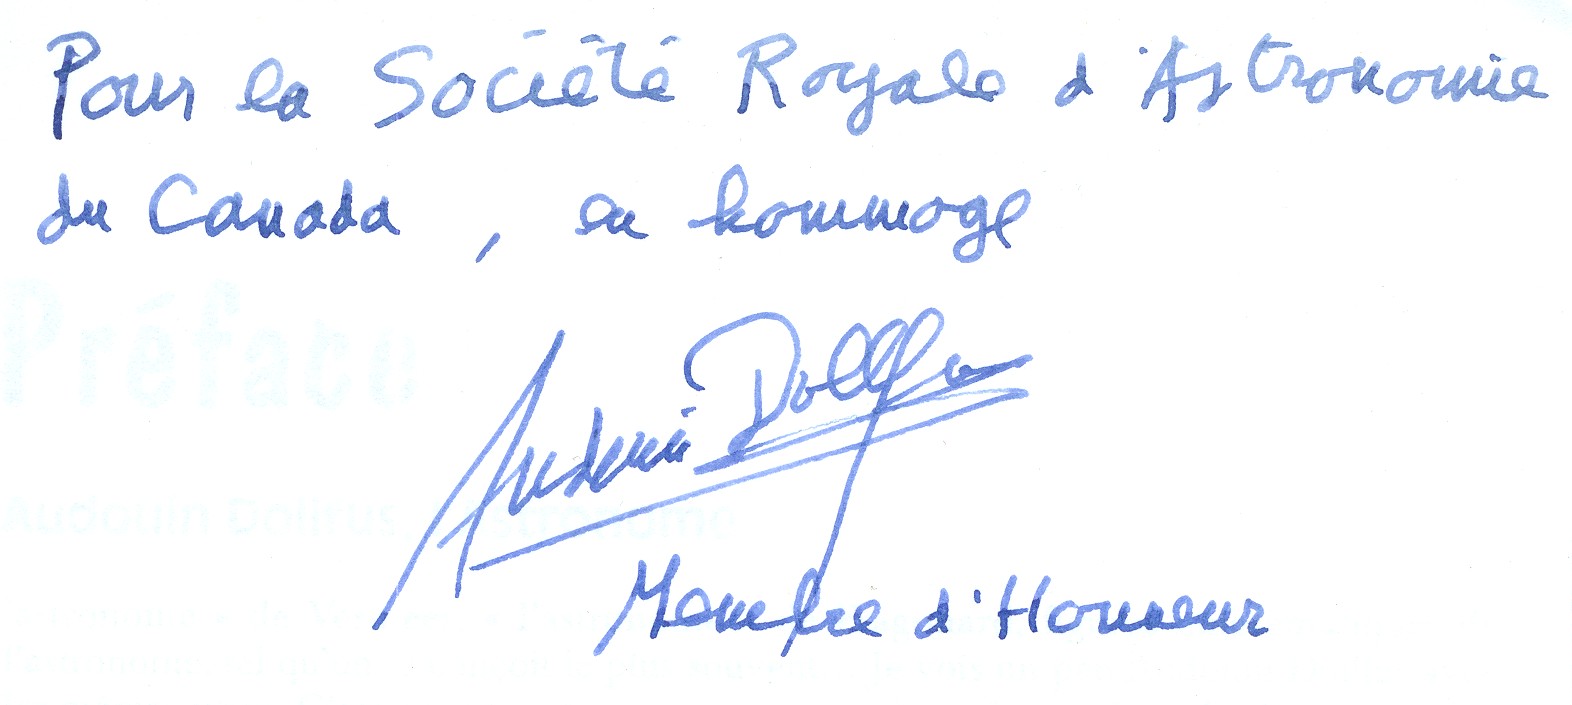 Pour la Société Royale d'Astronomie
du Canada, en hommage
Préface
Audouin Dollfus
Audouin Dollfus, Astronome
Membre d'Honneur